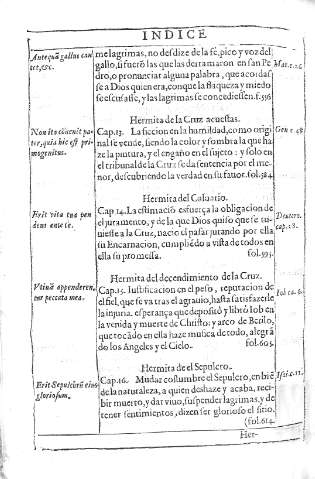 INDICE
Antequã gallus can
tet, &c.
me lagrimas, no desdize de la fe, pico y voz del
gallo, si fuerõ las que derramaron en san Pe
dro, o pronunciar alguna palabra, que acordas
se a Dios quien era, con que la flaqueza y miedo
se escusasse, y las lagrimas se concediessen. f.596
Mat. c.26
Hermita de la Cruz acuestas.
Non ita cõuenit pa-
ter, quia hic est pri
mogenitus.
Cap.13. La ficcion en la humildad, como ori
ginal se vende, siendo la color y sombra la que ha
ze la pintura, y el engaño en el sujeto: y solo en
el tribunal de la Cruz se da sentencia por el me-
nor, descubriendo la verdad en su fauor. fol.584.
Gen. c 48
Hermita del Caluario.
Erit vita tua pen
dens ante te.
Cap 14. La estimaciõ esfuerça la obligacion de
el juramento, y de la que Dios quiso que se tu-
uiesse a la Cruz, nacio el passar jurando por ella
su Encarnacion, cumpliẽdo a vista de todos en
ella su promessa.
fol.593.
Deutero.
cap. 28.
Hermita del decendimiento de la Cruz.
Vtinã appenderen
tur peccata mea.
Cap.15. Iustificacion en el peso, reputacion de
el fiel, que se va tras el agrauio, hasta satisfazerle
la injuria. esperança que depositó y libró Iob en
la venida y muerte de Christo: y arco de
que tocado en ella haze musica de todo, alegrã
do los Angeles y el Cielo.
fol.605.
Iob ca. 6.
Hermita de el Sepulcro.
Erit Sepulcrũ eius
gloriosum.
Cap.16. Mudar costumbre el Sepulcro, en biẽ
de la naturaleza, a quien deshaze y acaba, reci-
bir muerto, y dar viuo, suspender lagrimas, y de
tener sentimientos, dizen ser glorioso el sitio.
(fol.614.
Isai. c.11.
Her-